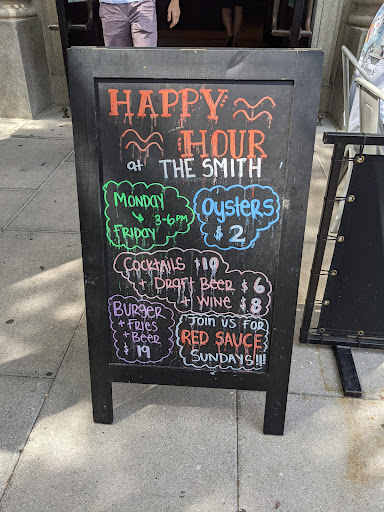 HAPPY
HOUR
at THE SMITH
MONDAY
3-6PM
FRIDAY
Oysters
$2
COCKTAILS $10
+ DRAFT BEER $6
+ WINE $8
BURGER
+ FRIES
+ BEER
$19
JOIN US FOR
RED SAUCE
SUNDAYS!!!